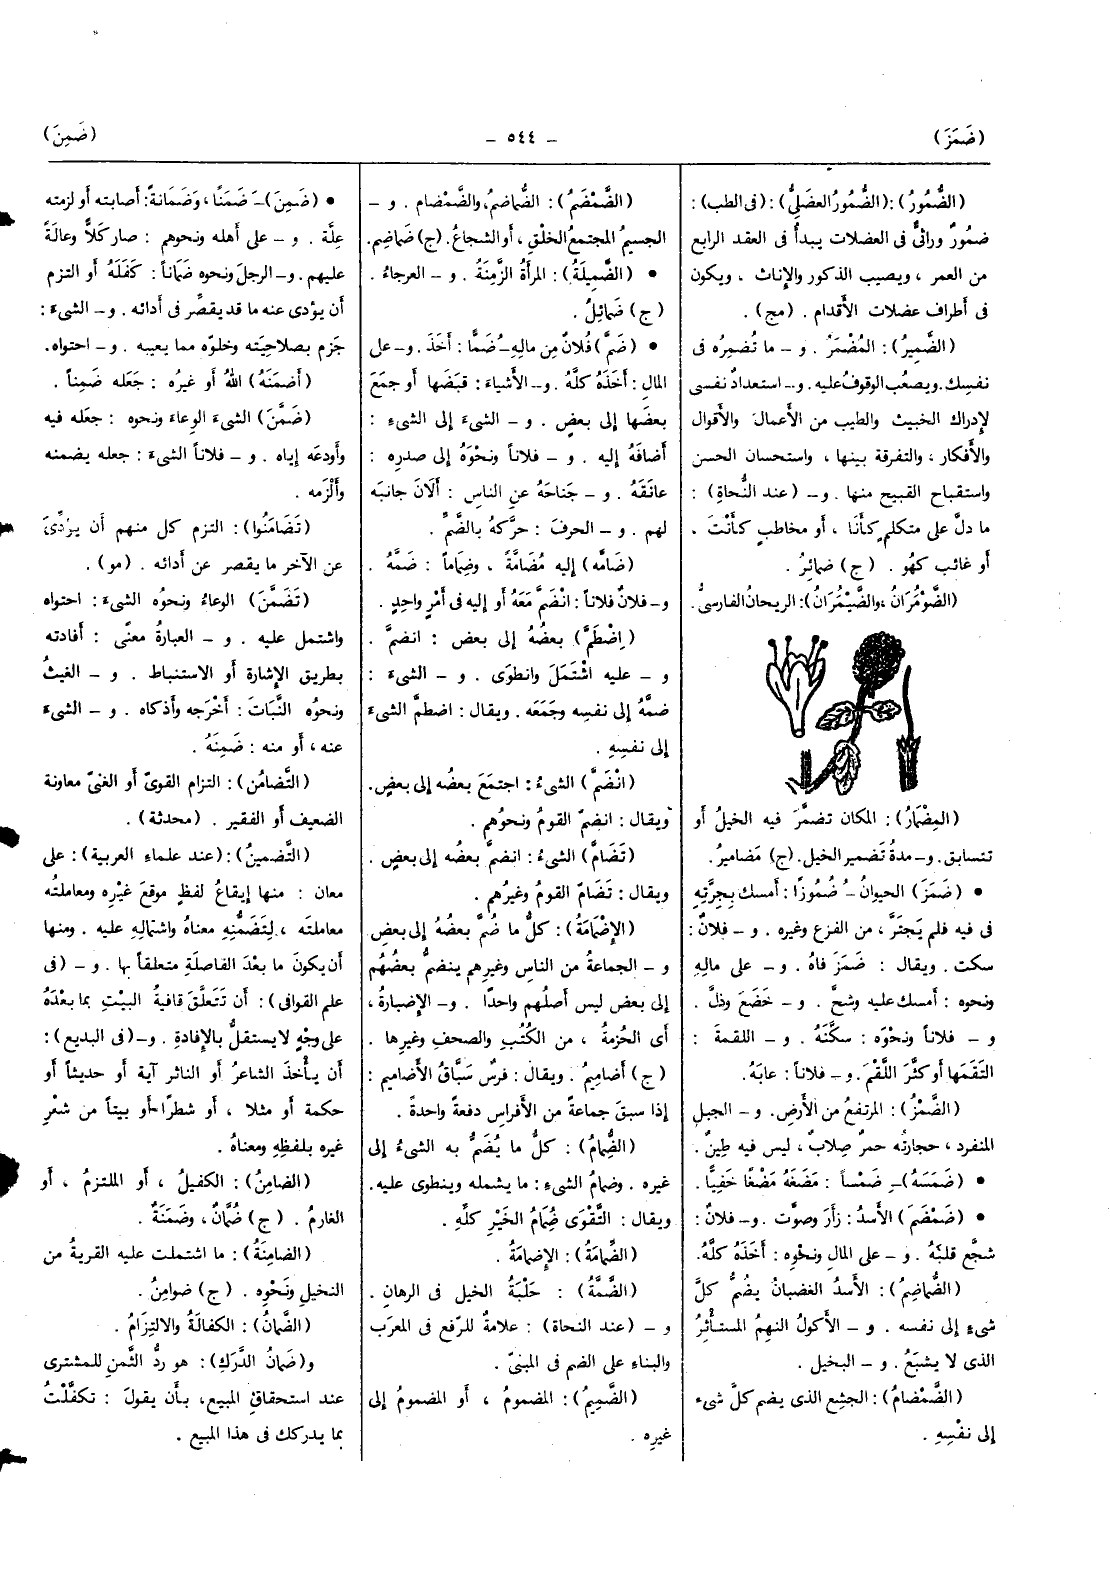 (ضَمَزَ)
- ٥٤٤ -
(ضَمِنَ)
(الضُّمُورُ) : (الضُّمُورُ العضَلِىُّ) : (فى الطب) :
ضمُورٌ وراثىٌّ فى العضلات يبدأ فى العقد الرابع
من العمر ، ويصيب الذكور والإناث ، ويكون
فى أطراف عضلات الأقدام . (مج) .
(الضَّمِيرُ) : المُضْمَرُ . و – ما تُضمِرُه فى
نفسِك . ويصعُب الوقوفُ عليه . و– استعدادٌ نفسى
لإدراك الخبيث والطيب من الأعمال والأقوال
والأفكار ، والتفرقة بينها ، واستحسان الحسن
واستقباح القبيح منها . و– (عند النُّحاةِ) :
ما دلَّ على متكلم كأنَا ، أو مخاطبٍ كأنْتَ ،
أو غائب كهُو . (ج) ضمائرُ .
(الضَّوْمُرَانُ ، والضَّيْمُرَانُ) : الريحانُ الفارسىُّ .
(المِضْمارُ) : المكان تضمَّرَ فيه الخيلُ أو
تتسابق . و– مدةُ تَضمير الخيل . (ج) مَضاميرُ .
• (ضَمَزَ) الحيوانُ –ُ ضُمُوزًا : أمسك بِجِرَّتِهِ
فى فيه فلم يَجتَرَّ ، من الفزع وغيره . و – فلانٌ :
سكت . ويقال : ضَمَزَ فاهُ . و – على مالِهِ
ونحوه : أمسك عليه وشحَّ . و – خَضَعَ وذلَّ .
و – فلاناً ونحْوَه : سكَّنَهُ . و – اللقمةَ :
التَقَمَها أو كثَّرَ اللَّقْمَ . و – فلاناً : عابَهُ .
(الضَّمْزُ) : المرتفعُ من الأرضِ . و – الجبل
المنفرد ، حجارتُه حمرٌ صِلابٌ ، ليس فيه طِينٌ .
• (ضَمَسَهُ) –ِ ضَمْساً : مَضَغَهُ مَضْغًا خَفِيًّا .
• (ضَمْضَمَ) الأسدُ : زأرَ وصوَّت . و– فلانٌ :
شجَّع قلبَهُ . و – على المالِ ونحْوِه : أخَذَهُ كلَّهُ .
(الضُّماضِمُ) : الأسدُ الغضبانُ يضُم كلَّ
شىءٍ إلى نفسه . و – الأكولُ النهِمُ المستأْثِرُ
الذى لا يشبَعُ . و – البخيل .
(الضَّمْضامُ) : الجشِع الذى يضم كلَّ شىء
إلى نفْسِهِ .
(الضَّمْضَمُ) : الضُّماضِمُ ، والضَّمْضام . و –
الجسيمُ المجتمعُ الخلْقِ ، أو الشجاعُ . (ج) ضَماضِم .
• (الضَّمِيلَةُ) : المرأةُ الزَّمِنَةُ . و – العرجاءُ .
(ج) ضَمائِلُ .
• (ضَمَّ) فُلانٌ مِن مالِهِ –ُ ضَمًّا : أخَذَ . و– على
المال : أخَذَهُ كلَّهُ . و– الأشياءَ : قبَضَها أو جمَعَ
بعضَها إلى بعضٍ . و – الشىءَ إلى الشىءِ :
أضافَهُ إليه . و – فلاناً ونحْوَهُ إلى صدرِه :
عانَقَهُ . و – جَناحَهُ عنِ الناسِ : ألَانَ جانبَه
لهم . و – الحرفَ : حرَّكهُ بالضَّمِّ .
(ضَامَّه) إليه مُضَامَّةً ، وضِماماً : ضَمَّهُ .
و– فلانٌ فلاناً : انْضَمَّ مَعَهُ أو إليه فى أمْرٍ واحِدٍ .
(اِضْطَمَّ) بعضُهُ إلى بعض : انضمَّ .
و – عليه اشْتَمَلَ وانطوَى . و – الشىءَ :
ضمَّهُ إلى نفسِه وجَمَعَه . ويقال : اضطمَّ الشىءَ
إلى نفسِهِ .
(انْضَمَّ) الشىءُ : اجتمَعَ بعضُه إلى بعضٍ .
ويقال : انضمّ القومُ ونحوُهم .
(تَضَامَّ) الشىءُ : انضمَّ بعضُه إلى بعضٍ .
ويقال : تَضَامَّ القومُ وغيرُهم .
(الإِضْمَامَةُ) : كلُّ ما ضُمَّ بعضُهُ إلى بعضِ
و – الجماعةُ من الناسِ وغيرِهم ينضمُّ بعضُهُم
إلى بعض ليس أصلُهم واحدًا . و– الإضبارةُ ،
أى الحُزمةُ ، من الكُتُبِ والصحفِ وغيرِها .
(ج) أضامِيمُ . ويقال : فرسٌ سَبَّاقُ الأضاميم :
إذا سبقَ جماعةً من الأفراسِ دفعةً واحدةً .
(الضِّمامُ) : كلُّ ما يُضَمُّ به الشىءُ إلى
غيره . وضِمامُ الشىءِ : ما يشمله وينطوى عليه .
ويقال : التَّقْوَى ضِمَامُ الخَيْرِ كلِّهِ .
(الضِّمامَةُ) : الإِضمامَةُ .
(الضَّمَّةُ) : حَلْبَةُ الخيل فى الرهان .
و – (عند النحاة) : علامةٌ للرَّفع فى المعرَب
والبناءِ على الضم فى المبنىّ .
(الضَّمِيمُ) : المضمومُ ، أو المضمومُ إلى
غيرِه .
• (ضَمِنَ) –َ ضَمَنًا ، وَضَمَانةً : أصابته أو لزمته
عِلَّة . و – على أهله ونحوهم : صار كَلاًّ وعالةً
عليهم . و– الرجلَ ونحوه ضَمَاناً : كَفَلَهُ أو التزم
أن يؤدى عنه ما قد يقصِّر فى أدائه . و– الشىءَ :
جَزم بصلاحِيَته وخلوِّه مما يعيبه . و– احتواه .
(أضمَنَهُ) اللهُ أو غيرُه : جَعَله ضَمِناً .
(ضَمَّنَ) الشىءَ الوِعاءَ ونحوه : جعَله فيه
وأودعَه إياه . و – فلاناً الشىءَ : جعله يضمنه
وألْزَمه .
(تَضَامَنُوا) : التزم كل منهم أن يؤدِّىَ
عن الآخر ما يقصر عن أدائه . (مو) .
(تَضَمَّنَ) الوعاءُ ونحوُه الشىءَ : احتواه
واشتمل عليه . و – العبارةُ معنًى : أفادته
بطريق الإِشارةِ أو الاستنباط . و – الغيثُ
ونحوُه النَّبَاتَ : أخْرَجه وأذكاه . و – الشىءَ
عنه ، أو منه : ضَمِنَهُ .
(التَّضامُن) : التزام القوىّ أو الغنىّ معاونة
الضعيف أو الفقير . (محدثة) .
(التَّضمينُ) : (عند علماءِ العربية) : على
معان : منها إيقاعُ لفظٍ موقعَ غيْرِه ومعاملتُه
معاملتَه ، لِتَضَمُّنِهِ معناهُ واشتمالِهِ عليه . ومنها
أن يكونَ ما بعْدَ الفاصلَةِ متعلقاً بها . و – (فى
علم القوافى) : أن تَتَعلَّقَ قافيةُ البيْتِ بما بعْدَهُ
على وجْهٍ لا يستقلُّ بالإِفادةِ . و– (فى البديع) :
أن يأْخذَ الشاعرُ أو الناثر آية أو حديثاً أو
حكمة أو مثلا ، أو شطرًا أو بيتاً من شعْرِ
غيره بلفظِهِ ومعناهُ .
(الضامِنُ) : الكفيلُ ، أو الملتزمُ ، أو
الغارمُ . (ج) ضُمَّانٌ ، وضَمَنَةٌ .
(الضامِنَةُ) : ما اشتملت عليه القريةُ من
النخيلِ ونَحْوِه . (ج) ضوامِنُ .
(الضَّمانُ) : الكفالةُ والالتِزامُ .
و(ضَمانُ الدَّرَكِ) : هو ردُّ الثَّمنِ للمشترى
عند استحقاقِ المبيع ، بأن يقولَ : تكفَّلْتُ
بما يدركك فى هذا المبيع .